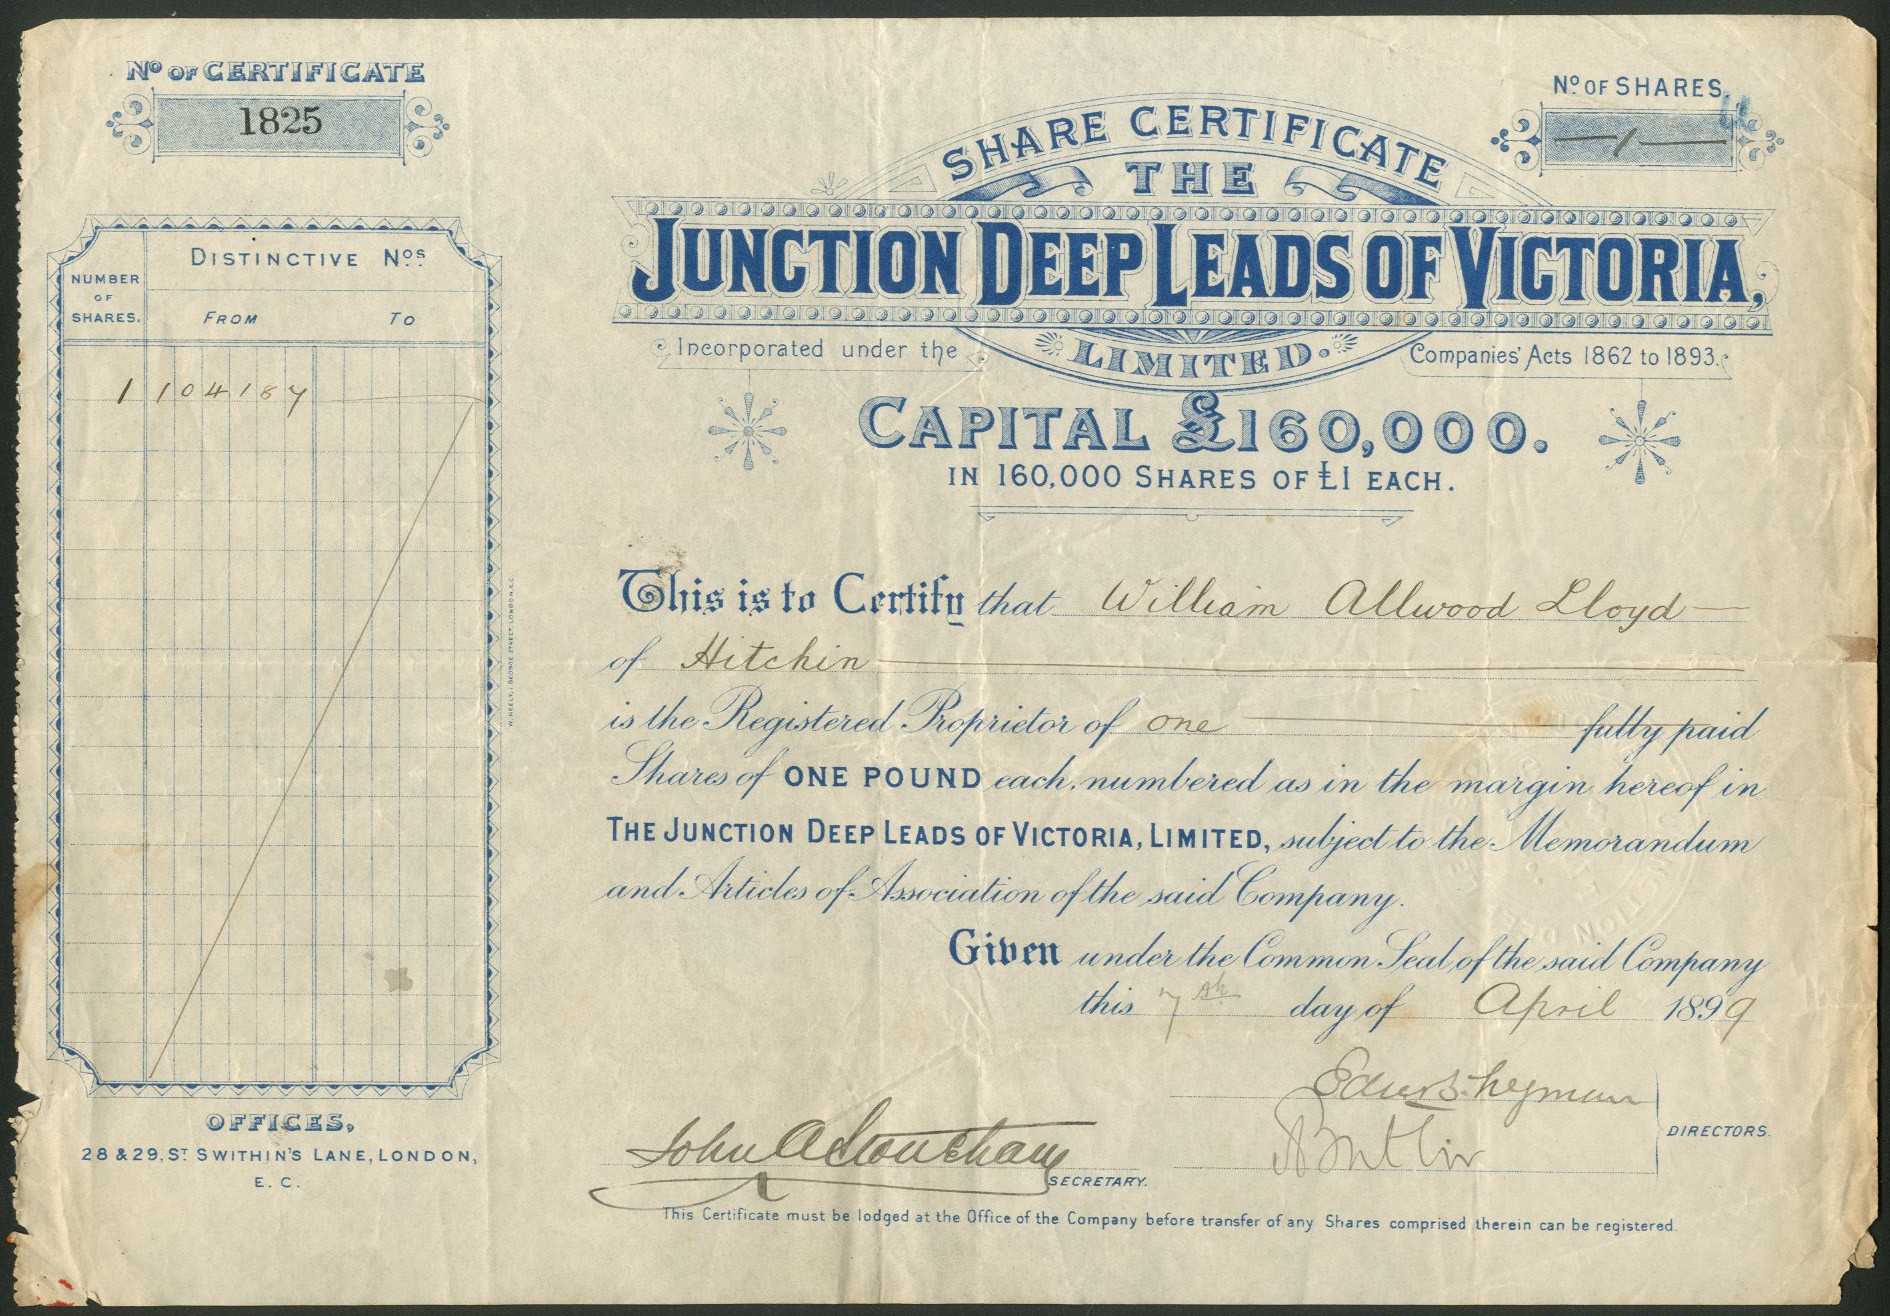 Nº OF CERTIFICATE
1825
Nº OF SHARES
1
SHARE CERTIFICATE
THE
JUNCTION DEEP LEADS OF VICTORIA,
LIMITED.
Incorporated under the Companies' Acts 1862 to 1893.
CAPITAL £160,000.
IN 160,000 SHARES OF £1 EACH.
NUMBER OF SHARES.
DISTINCTIVE Nos.
FROM TO
1 104187
This is to Certify that William Allwood Lloyd
of Hitchin
is the Registered Proprietor of one fully paid
Shares of ONE POUND each, numbered as in the margin hereof in
THE JUNCTION DEEP LEADS OF VICTORIA, LIMITED, subject to the Memorandum
and Articles of Association of the said Company.
Given under the Common Seal of the said Company
this 7th day of April 1899
DIRECTORS.
John
SECRETARY.
OFFICES,
28 & 29, ST SWITHIN'S LANE, LONDON,
E. C.
This Certificate must be lodged at the Office of the Company before transfer of any Shares comprised therein can be registered.